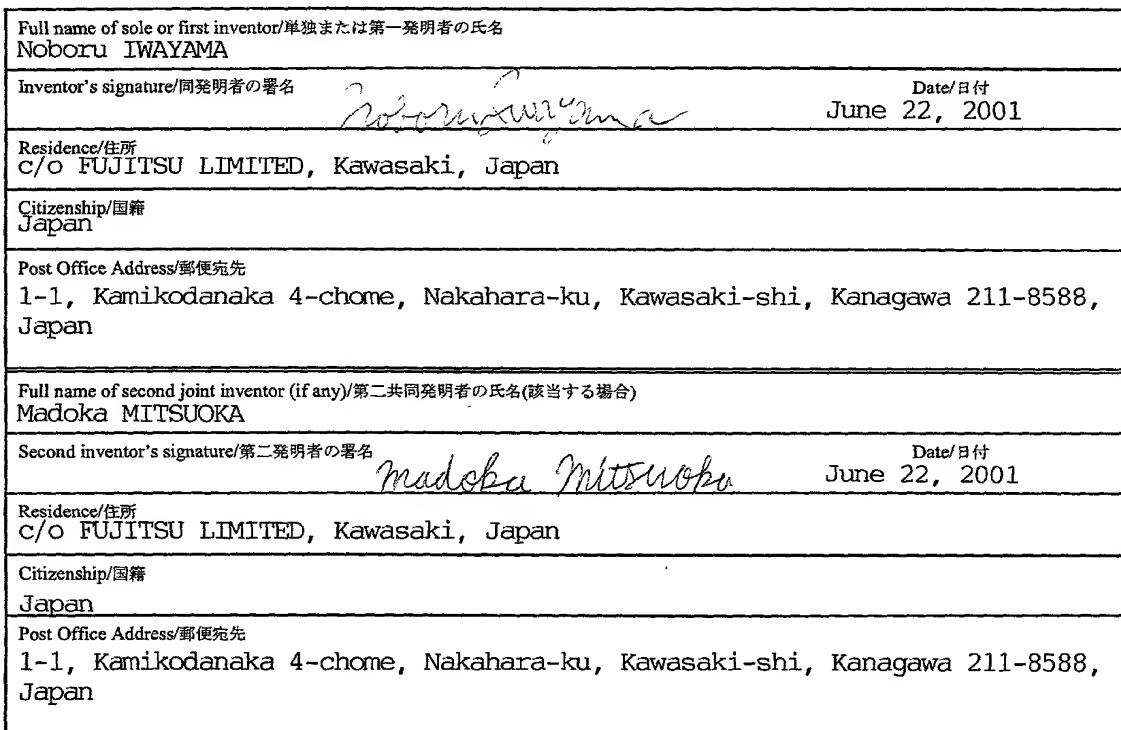 Full name of sole or first inventor/単独または第一発明者の氏名
Noboru IWAYAMA
Inventor's signature/同発明者の署名
Noboru Iwayama
Date/日付
June 22, 2001
Residence/住所
c/o FUJITSU LIMITED, Kawasaki, Japan
Citizenship/国籍
Japan
Post Office Address/郵便宛先
1-1, Kamikodanaka 4-chome, Nakahara-ku, Kawasaki-shi, Kanagawa 211-8588,
Japan
Full name of second joint inventor (if any)/第二共同発明者の氏名(該当する場合)
Madoka MITSUOKA
Second inventor's signature/第二発明者の署名
Madoka Mitsuoka
Date/日付
June 22, 2001
Residence/住所
c/o FUJITSU LIMITED, Kawasaki, Japan
Citizenship/国籍
Japan
Post Office Address/郵便宛先
1-1, Kamikodanaka 4-chome, Nakahara-ku, Kawasaki-shi, Kanagawa 211-8588,
Japan